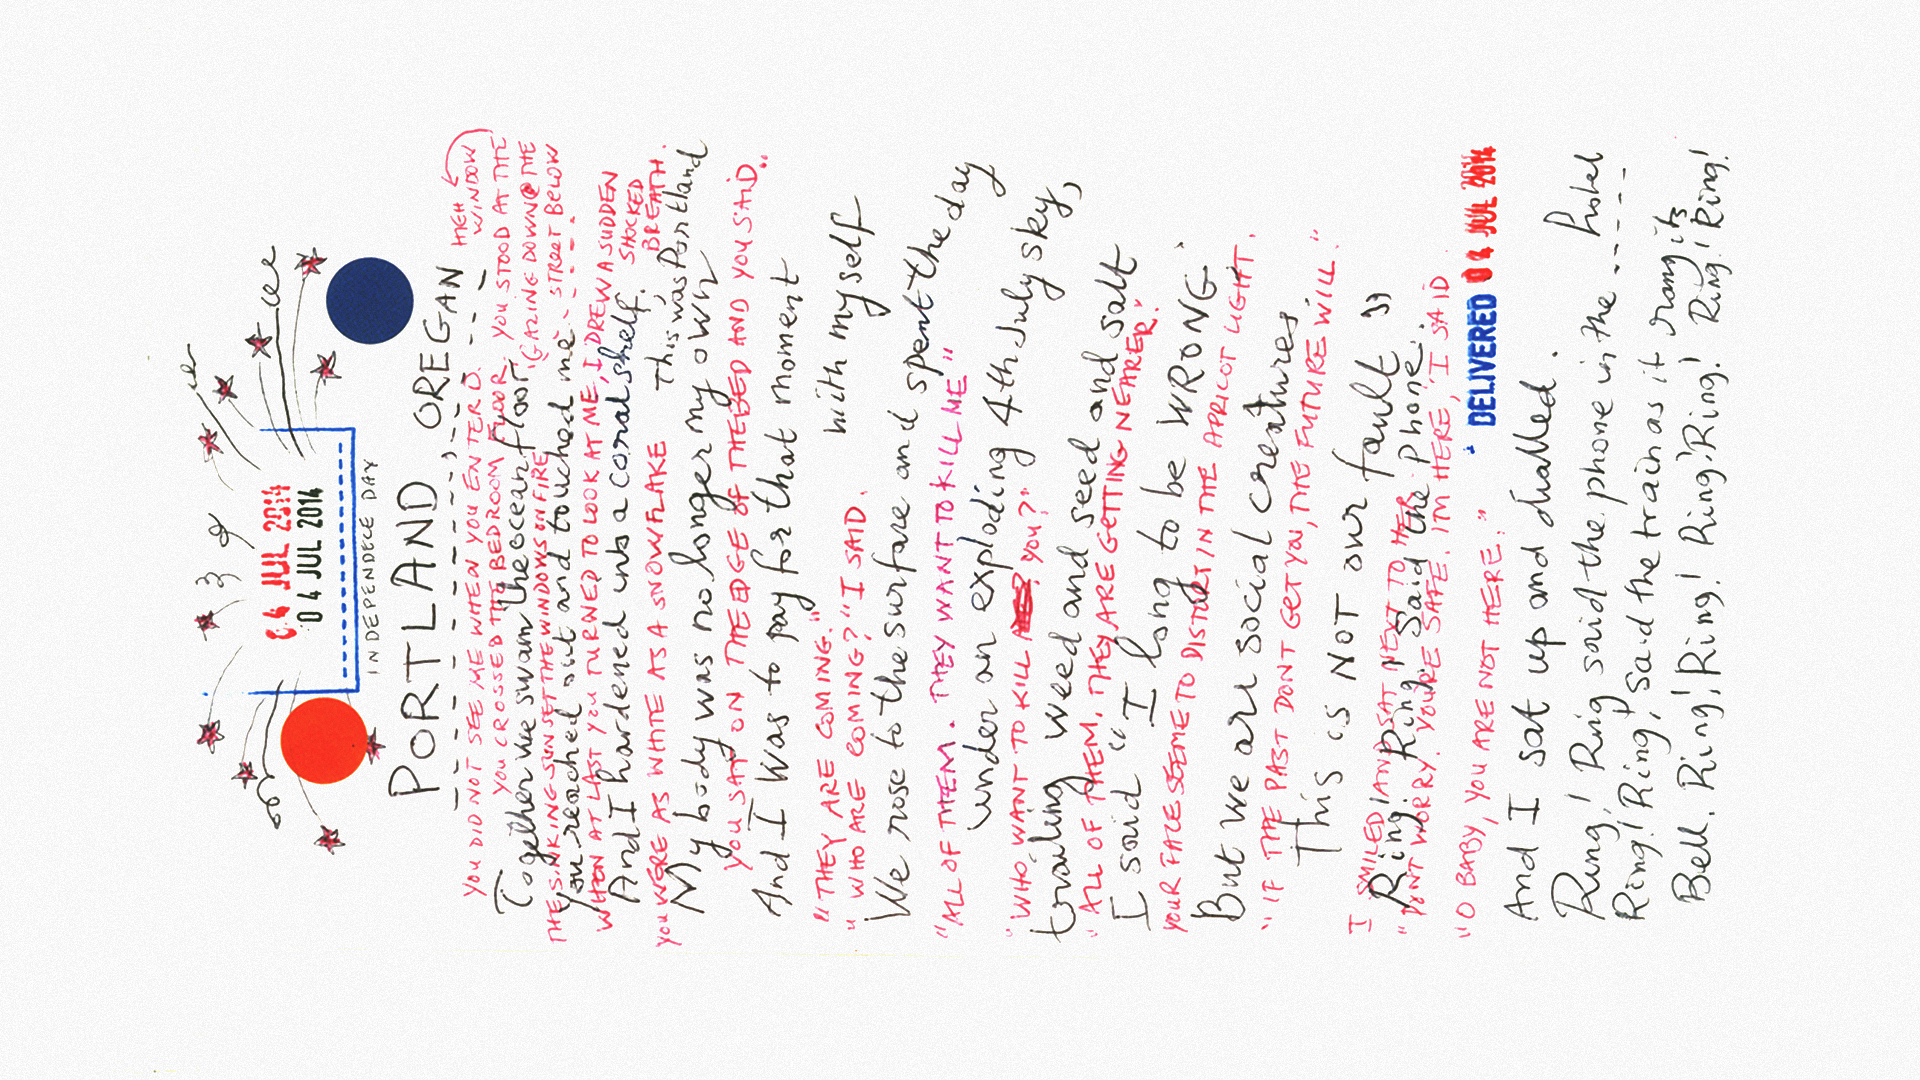 04 JUL 2014
04 JUL 2014
INDEPENDECE DAY
PORTLAND OREGAN
HIGH
YOU DID NOT SEE ME WHEN YOU ENTERED. WINDOW
YOU CROSSED THE BEDROOM FLOOR. YOU STOOD AT THE
Together we swam the ocean floor.
GAZING DOWN @ THE
THE SINKING SUN SET THE WINDOWS ON FIRE STREET BELOW
you reached out and touched me
WHEN AT LAST YOU TURNED TO LOOK AT ME, I DREW A SUDDEN
SHOCKED
And I hardened into a coral shelf.
BREATH.
YOU WERE AS WHITE AS A SNOWFLAKE
This was Portland
My body was no longer my own
YOU SAT ON THE EDGE OF THE BED AND YOU SAID..
And I was to pay for that moment
"THEY ARE COMING."
with myself
"WHO ARE COMING?" I SAID.
We rose to the surface and spent the day
"ALL OF THEM. THEY WANT TO KILL ME"
under an exploding 4th July sky,
"WHO WANT TO KILL YOU?"
trailing weed and seed and salt
"ALL OF THEM, THEY ARE GETTING NEARER."
I said "I long to be WRONG
YOUR FACE SEEME TO DISTORT IN THE APRICOT LIGHT.
But we are social creatures
"IF THE PAST DONT GET YOU, THE FUTURE WILL."
This is NOT our fault"
I SMILED AND SAT NEXT TO HER
Ring! Ring! Said the phone.
"DON'T WORRY. YOU'RE SAFE. I'M HERE," I SAID
"O BABY, YOU ARE NOT HERE."
DELIVERED 04 JUL 2014
And I sat up and dialled.
Ring! Ring said the phone in the .... hotel
Ring! Ring! Said the train as it rang its
Bell. Ring! Ring! Ring! Ring! Ring! Ring! Ring! Ring!